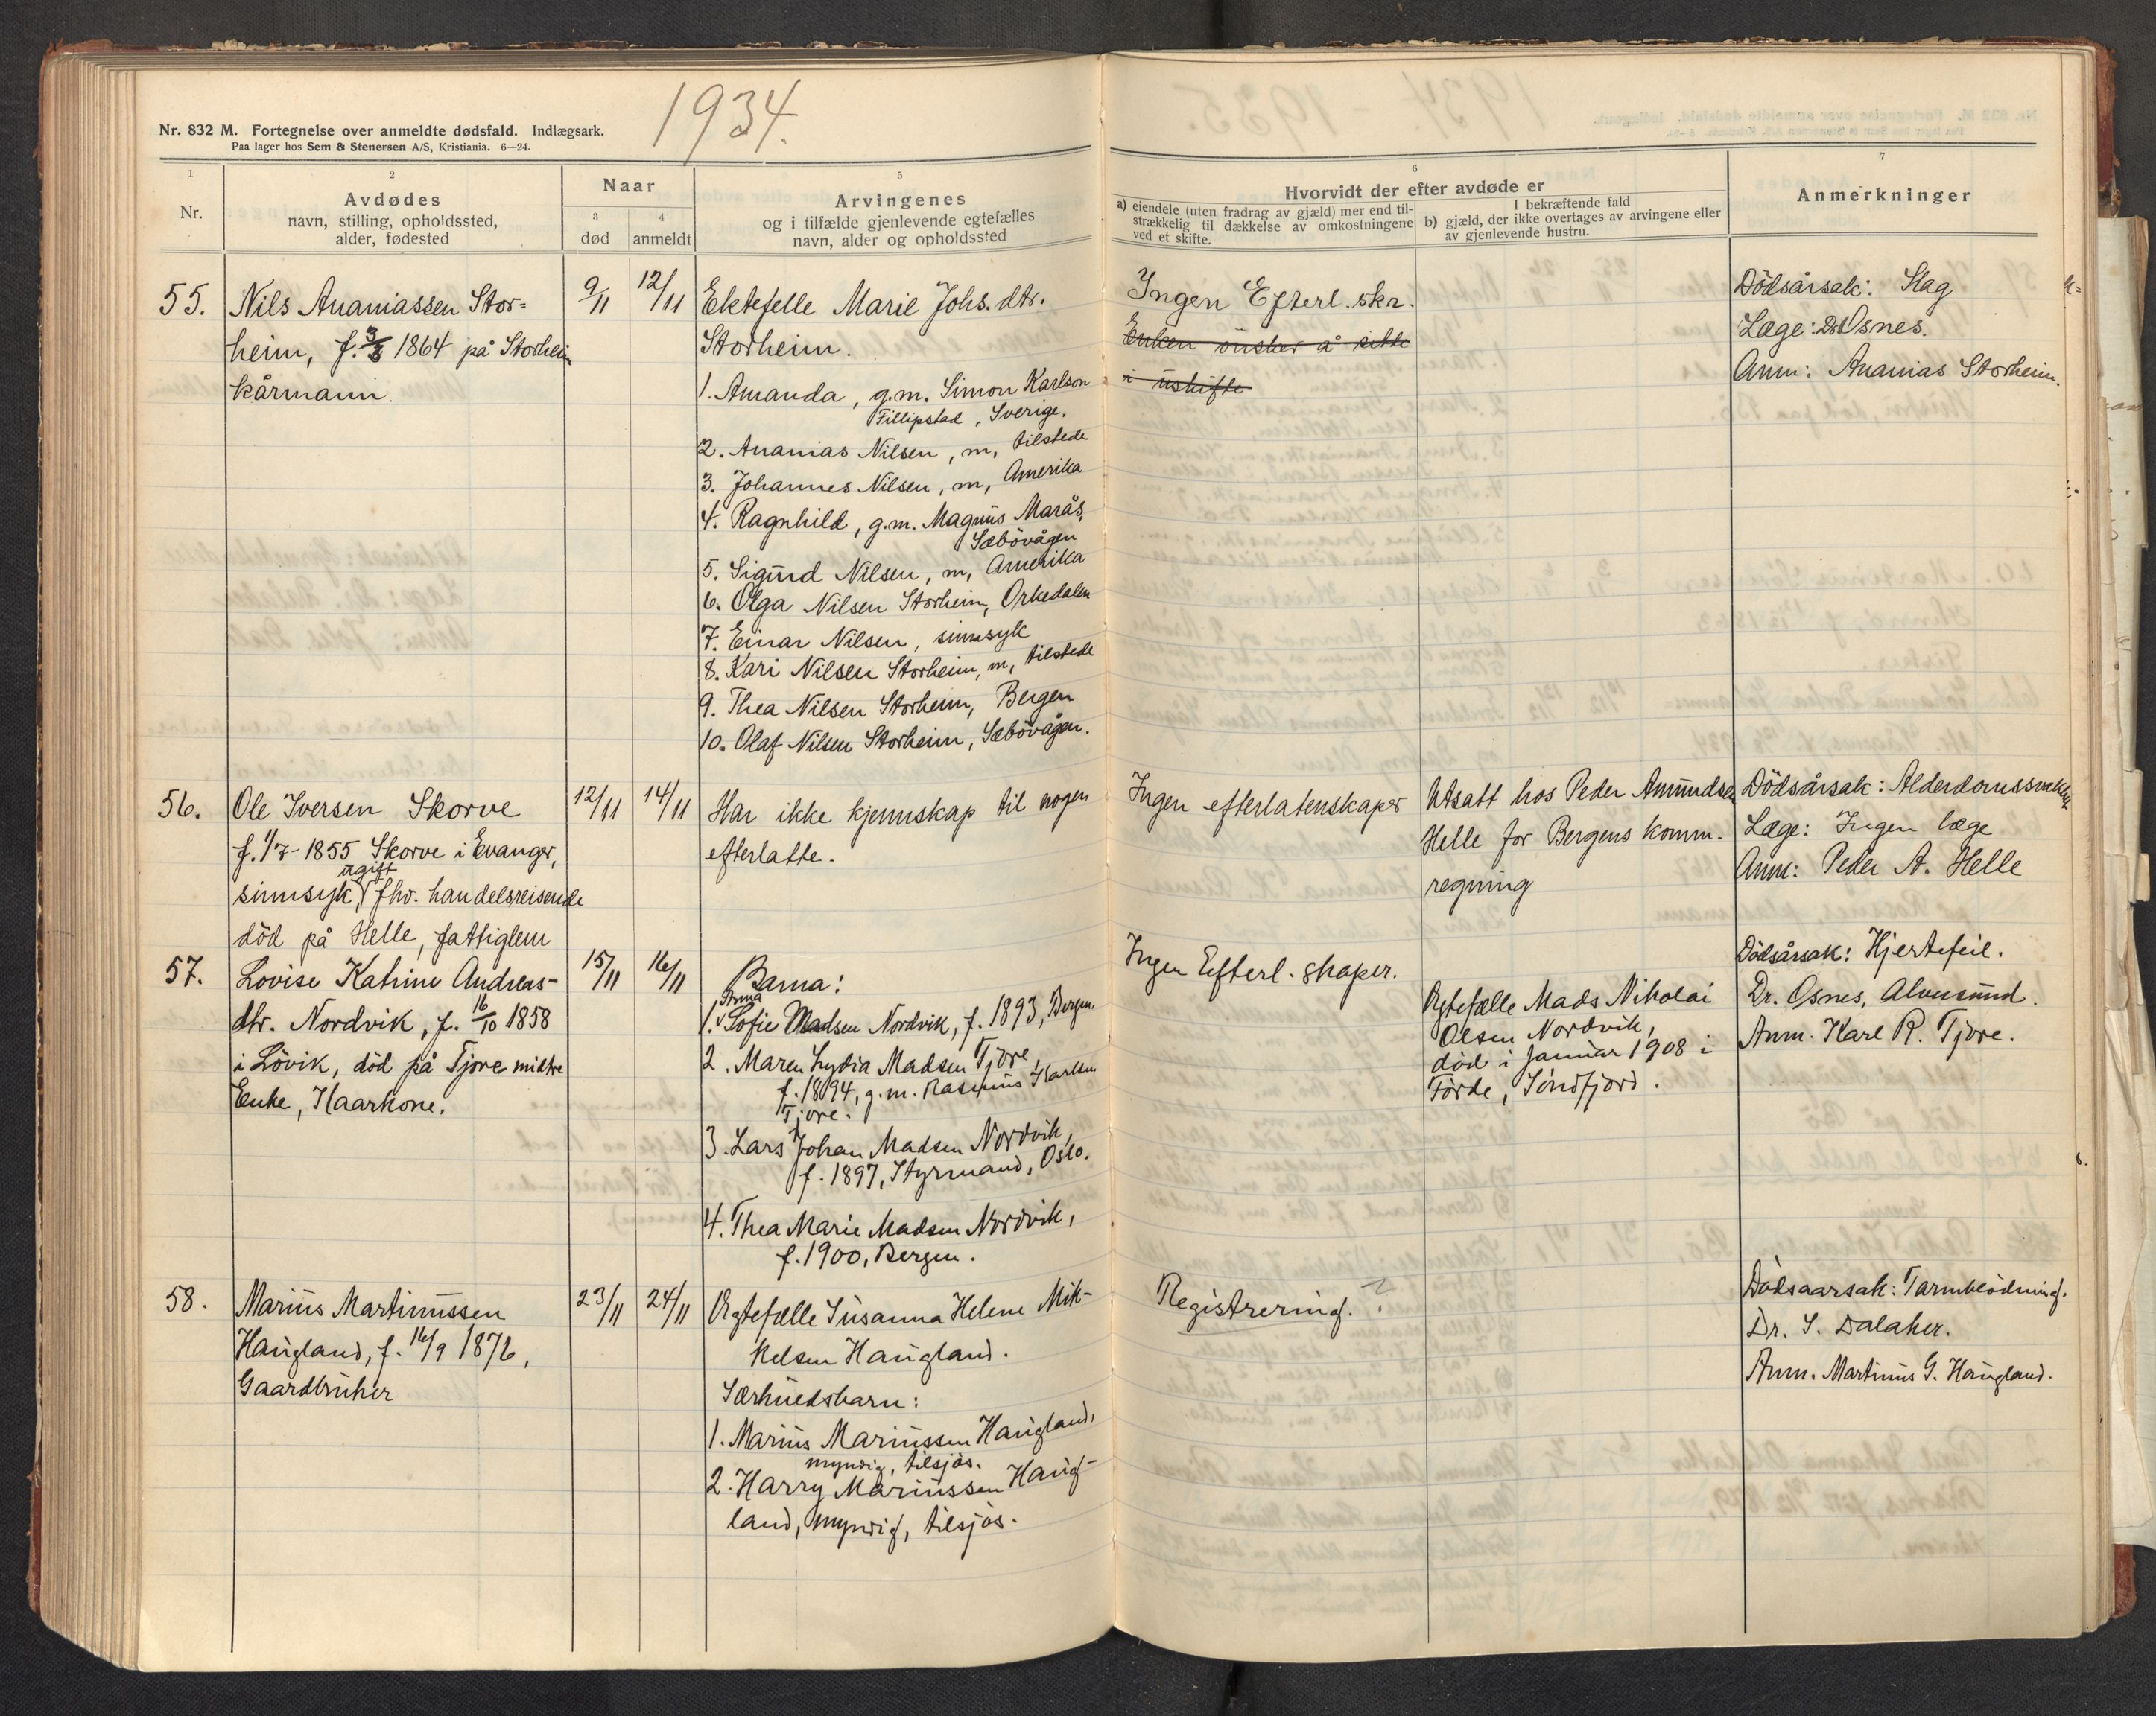 1934.
Nr. 832 M. Fortegnelse over anmeldte dødsfald. Indlægsark.
Paa lager hos Sem & Stenersen A/S, Kristiania. 6—24.
1
Nr.
2
Avdødes
navn, stilling, opholdssted,
alder, fødested
Naar
3
død
4
anmeldt
5
Arvingenes
og i tilfælde gjenlevende egtefælles
navn, alder og opholdssted
6
Hvorvidt der efter avdøde er
a) eiendele (uten fradrag av gjæld) mer end til-
strækkelig til dækkelse av omkostningene
ved et skifte.
I bekræftende fald
b) gjæld, der ikke overtages av arvingene eller
av gjenlevende hustru.
7
Anmerkninger
55.
Nils Ananiassen Stor=
heim, f. 3/3 1864 på Storheim
kårmann.
9/11
12/11
Ektefelle Marie Johs. dtr.
Storheim.
1. Amanda, g.m. Simon Karlson
Fillipstad, Sverige.
2. Ananias Nilsen, m, tilstede
3. Johannes Nilsen, m, Amerika
4. Ragnhild, g.m. Magnus Marås,
Sæbövågen
5. Sigurd Nilsen, m, Amerika
6. Olga Nilsen Storheim, Orkedalen
7. Einar Nilsen, sinnsyk
8. Kari Nilsen Storheim, m, tilstede
9. Thea Nilsen Storheim, Bergen
10. Olaf Nilsen Storheim, Sæbövågen.
Ingen Efterl. skr.
Enken ønsker å sitte
i uskifte
Dödsårsak: Slag
Læge: Dr Osnes.
Anm: Ananias Storheim.
56.
Ole Iversen Skorve
f. 1/7-1855 Skorve i Evanger,
ugift
sinnsyk, fhv. handelsreisende
död på Helle, fattiglem
12/11
14/11
Har ikke kjennskap til nogen
efterlatte.
Ingen efterlatenskaper
Utsatt hos Peder Amundsen
Helle for Bergens komm.
regning
Dödsårsak: Alderdomssvakhet
Læge: Ingen læge
Anm: Peder A. Helle
57.
Lovise Katrine Andreas-
dtr. Nordvik, f. 16/10 1858
i Lövik, död på Tjore midtre
Enke, Kaarkone.
15/11
16/11
Barna:
Anna
1. Sofie Madsen Nordvik, f. 1893, Bergen.
2. Maren Lydia Madsen Tjore,
f. 1894, g.m. Rasmus Karlsen
Tjore.
3. Lars Johan Madsen Nordvik,
f. 1897, Styrmand, Oslo.
4. Thea Marie Madsen Nordvik,
f. 1900, Bergen.
Ingen Efterl. skaper.
Egtefælle Mads Nikolai
Olsen Nordvik,
död i Januar 1908 i
Förde, Söndfjord.
Dödsårsak: Hjertefeil.
Dr. Osnes, Alversund.
Anm. Karl R. Tjore.
58.
Marius Martinussen
Haugland, f. 16/9 1876,
Gaardbruker
23/11
24/11
Egtefælle Susanna Helene Mik-
kelsen Haugland.
Særkuldsbarn:
1. Marius Mariussen Haugland,
myndig, tilsjös.
2. Harry Mariussen Haug-
land, myndig, tilsjös.
Registrering. ?
Dödsaarsak: Tarmblödning.
Dr. S. Dalaker.
Anm. Martinus G. Haugland.